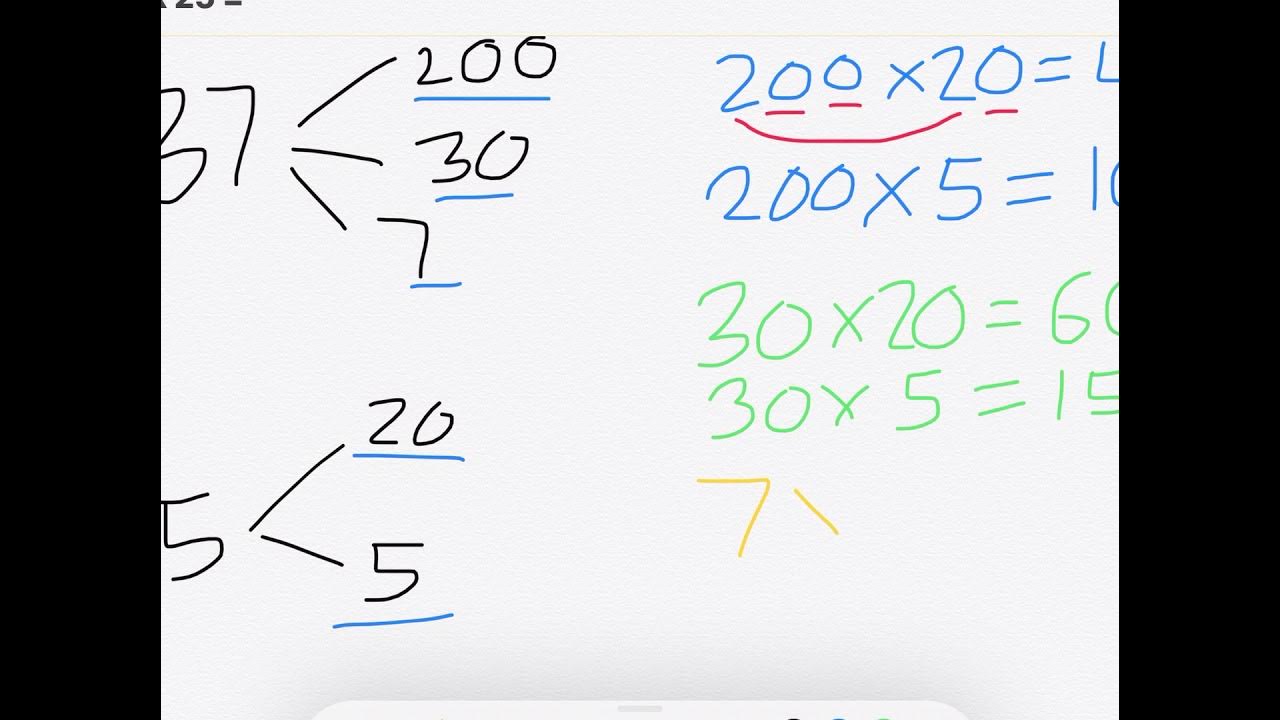 x 25 =
37
200
30
7
5
20
5
200 × 20 = 4
200 × 5 = 10
30 × 20 = 60
30 × 5 = 15
7